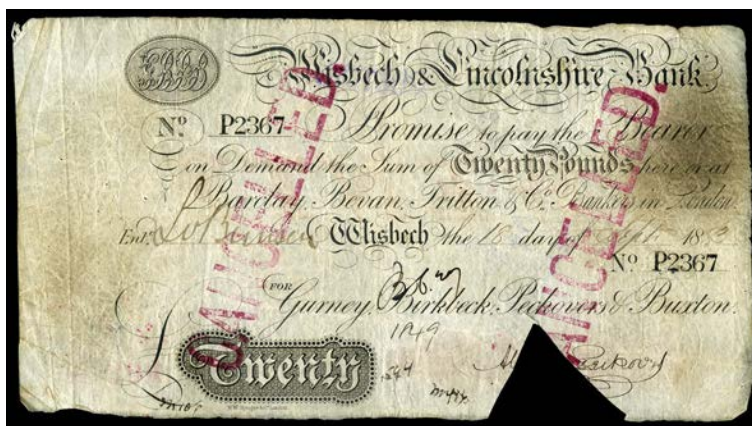 Wisbech & Lincolnshire Bank.
No. P2367 Promise to pay the Bearer
on Demand the Sum of Twenty Pounds here or at
Barclay, Bevan, Tritton & Co. Bankers in London.
Ent. Wisbech the 18 day of Sept 18
No. P2367
FOR
Gurney, Birkbeck, Peckovers & Buxton.
1849
Twenty
CANCELLED.
CANCELLED.